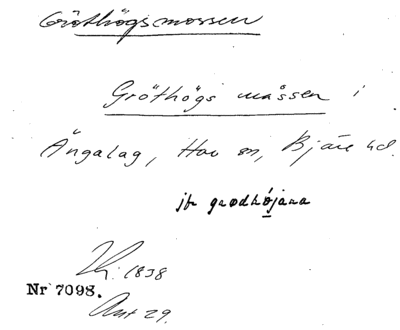 Gröthögsmossen
Gröthögs måssen i
Ängalag, Hov sn, Bjäre hd.
jfr grødhǫjana
1838
Nr 7098.
Ant 29.